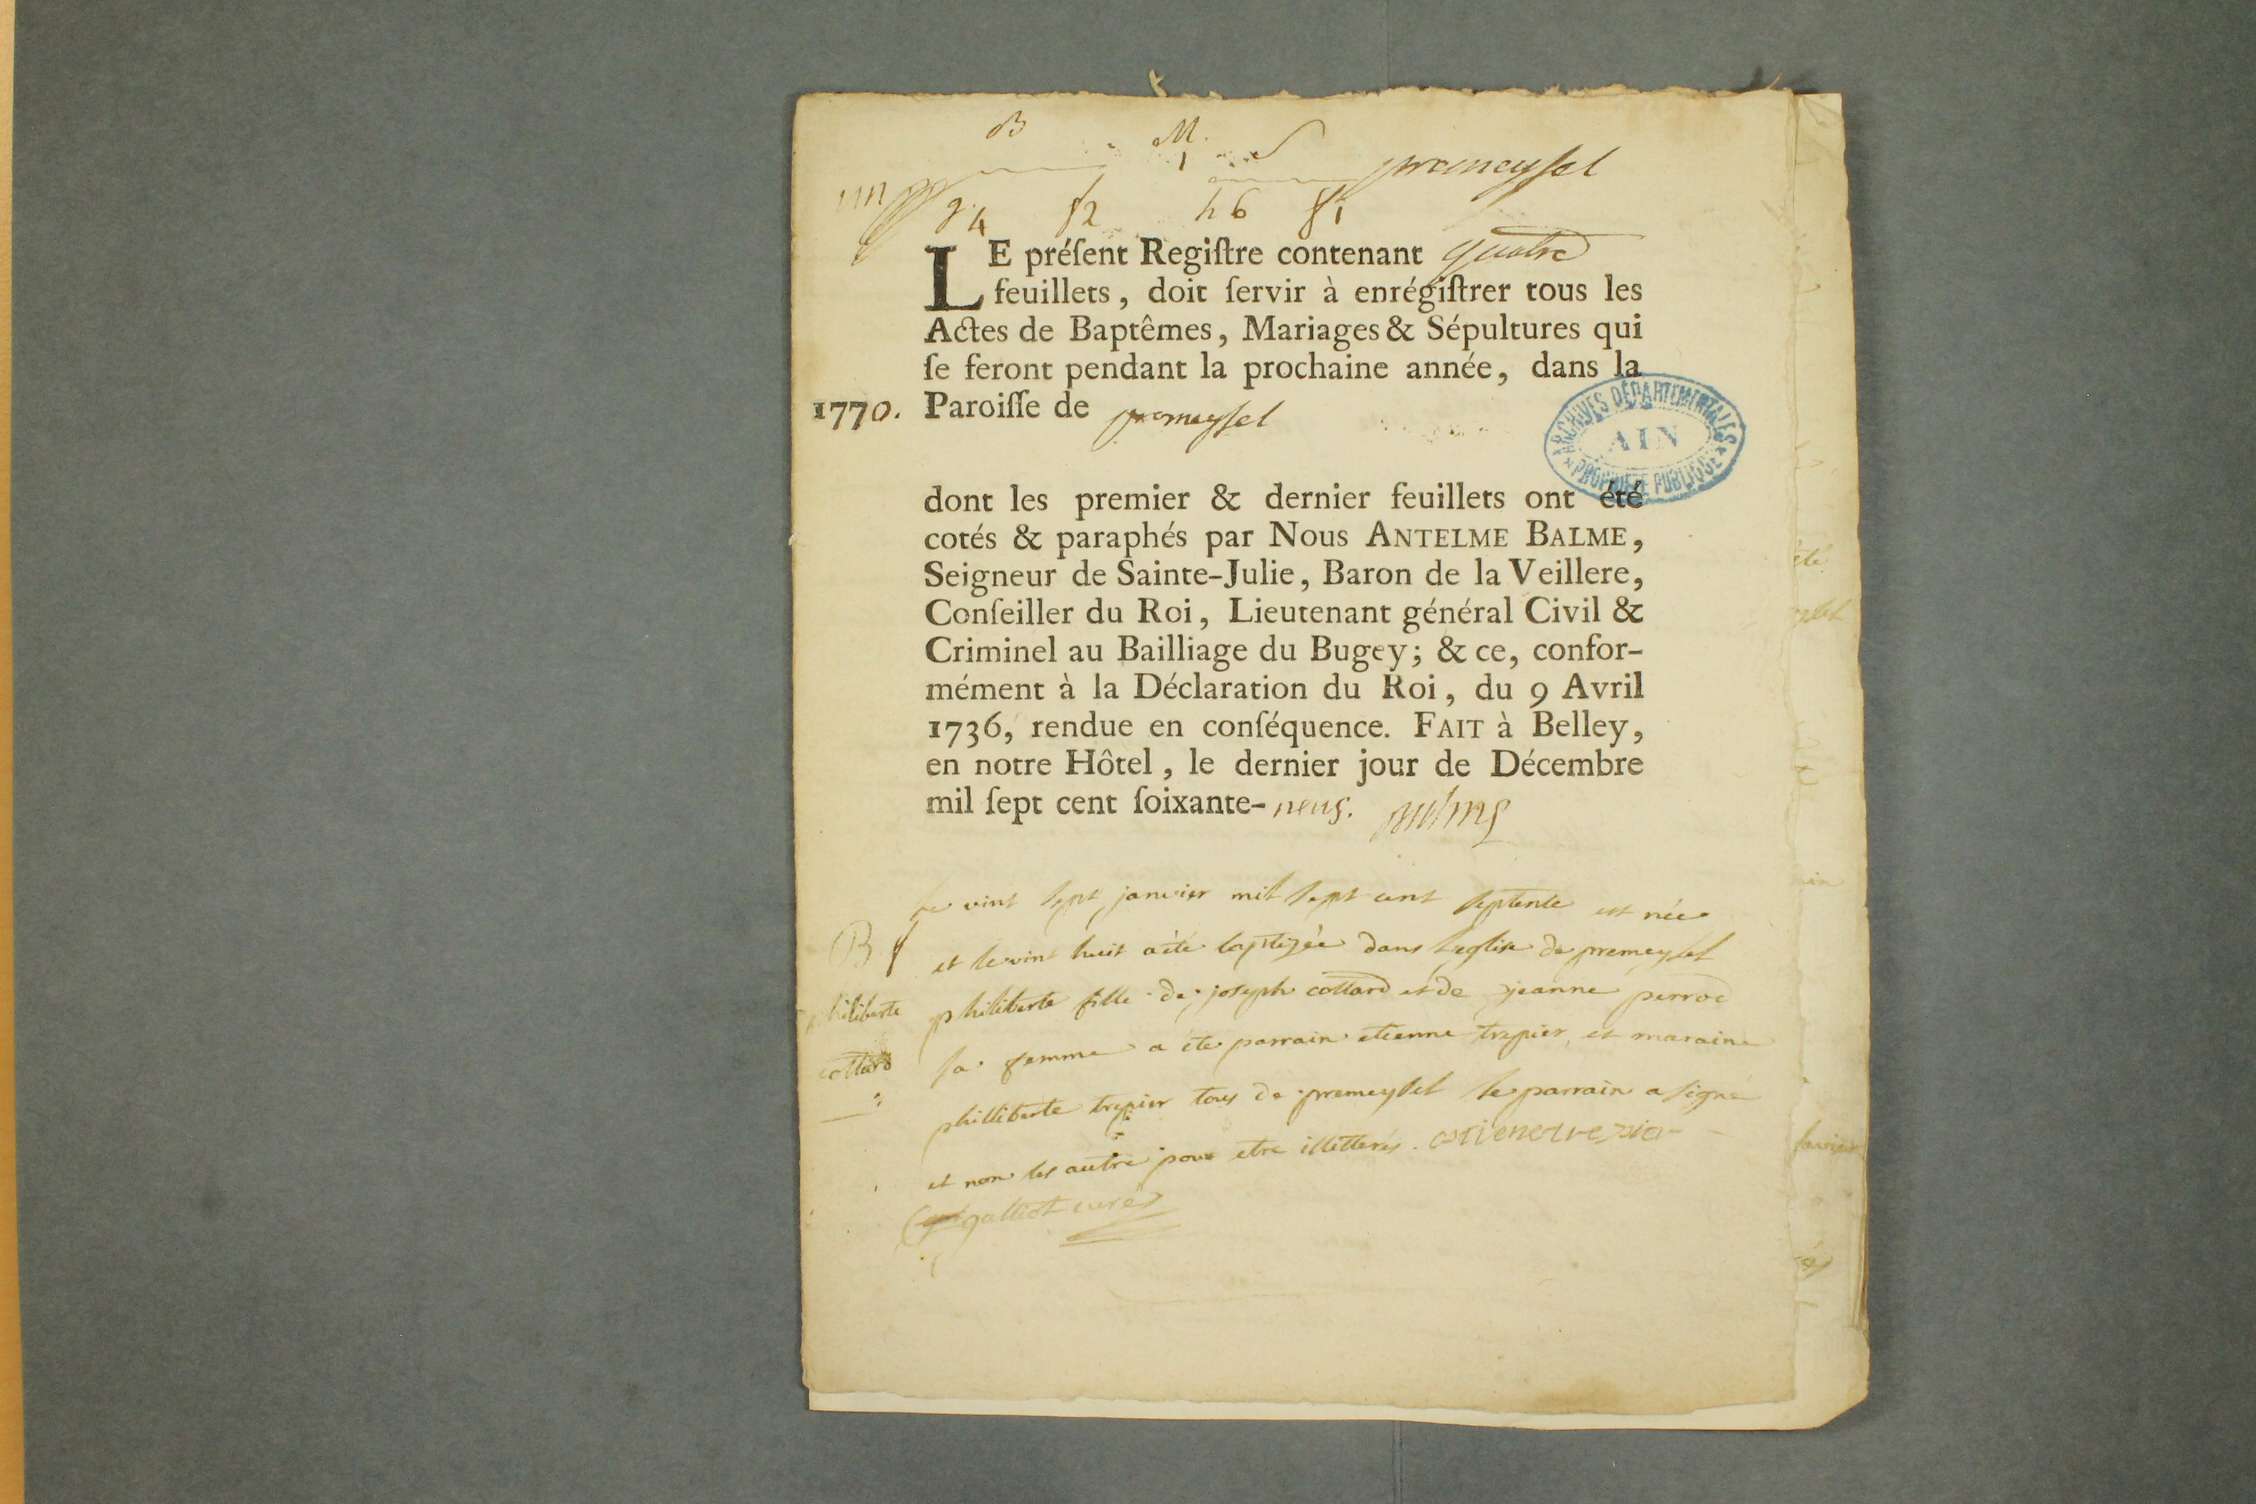 B M. S premeyssel
1
g 4 f 2 h 6 f 1
LE préſent Regiſtre contenant quatre
feuillets, doit ſervir à enrégiſtrer tous les
Actes de Baptêmes, Mariages & Sépultures qui
ſe feront pendant la prochaine année, dans la
1770. Paroiſſe de premeyssel
ARCHIVES DÉPARTEMENTALES
AIN
PROPRIÉTÉ PUBLIQUE
dont les premier & dernier feuillets ont été
cotés & paraphés par Nous ANTELME BALME,
Seigneur de Sainte-Julie, Baron de la Veillere,
Conſeiller du Roi, Lieutenant général Civil &
Criminel au Bailliage du Bugey; & ce, confor-
mément à la Déclaration du Roi, du 9 Avril
1736, rendue en conſéquence. FAIT à Belley,
en notre Hôtel, le dernier jour de Décembre
mil ſept cent ſoixante-neuf. Balme
Le vint sept janvier mil sept cent septente est née
B f et le vint huit a été baptizée dans l'eglise de premeyssel
philiberte philiberte fille de joseph cottard et de jeanne perrod
cottard sa femme a été parrain etienne trepier et maraine
philliberte trepier tous de premeyssel le parrain a signé
et non les autre pour etre illitterés. etienetrepier
galliot curé